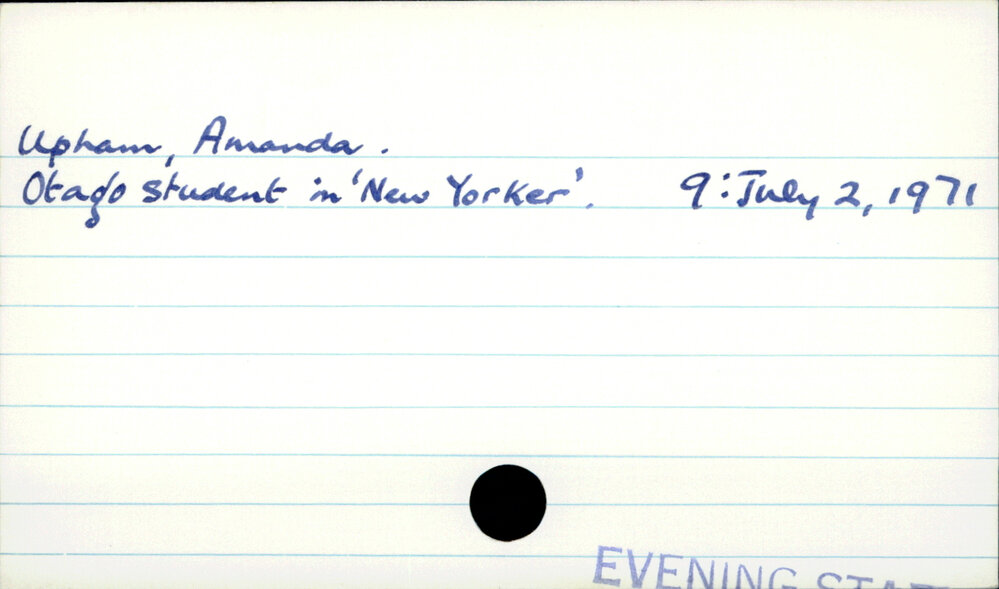 Upham, Amanda.
Otago student in 'New Yorker'. 9: July 2, 1971
EVENING